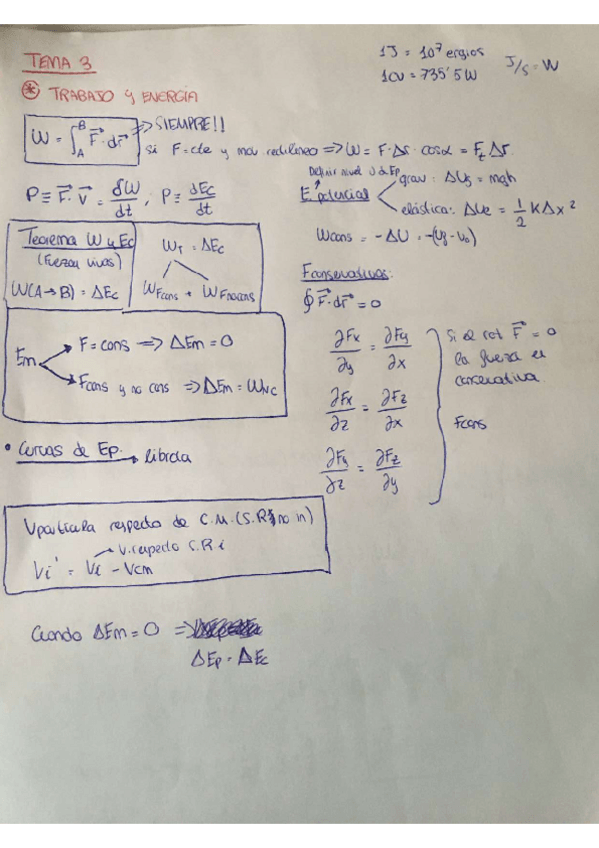 TEMA 3
1J = 10⁷ ergios
1CV = 735'5 W
J/s = W
* TRABAJO y ENERGÍA
W = ∫_A^B F⃗ · dr⃗ => SIEMPRE!!
si F = cte y mov rectilíneo => W = F · Δr · cosα = F_t Δr
P ≡ F⃗ · v⃗ = δW/dt ; P ≡ dEc/dt
Definir nivel 0 de Ep
E. potencial
grav: ΔUg = mgh
elástica: ΔUe = 1/2 K Δx²
Wcons = -ΔU = -(Uf - U0)
Teorema W y Ec
(Fuerzas vivas)
W(A→B) = ΔEc
W_T = ΔEc
W_Fcons + W_Fnocons
Fconservativas:
∮ F⃗ · dr⃗ = 0
∂Fx/∂y = ∂Fy/∂x
∂Fx/∂z = ∂Fz/∂x
∂Fy/∂z = ∂Fz/∂y
Si el rot F⃗ = 0
la fuerza es
conservativa
Fcons
Em
F = cons => ΔEm = 0
Fcons y no cons => ΔEm = W_NC
• Curvas de Ep → libreta
Vpartícula respecto de C.M. (S.R. no in)
V. respecto S.R i
Vi' = Vi - Vcm
Cuando ΔEm = 0 =>
ΔEp = ΔEc